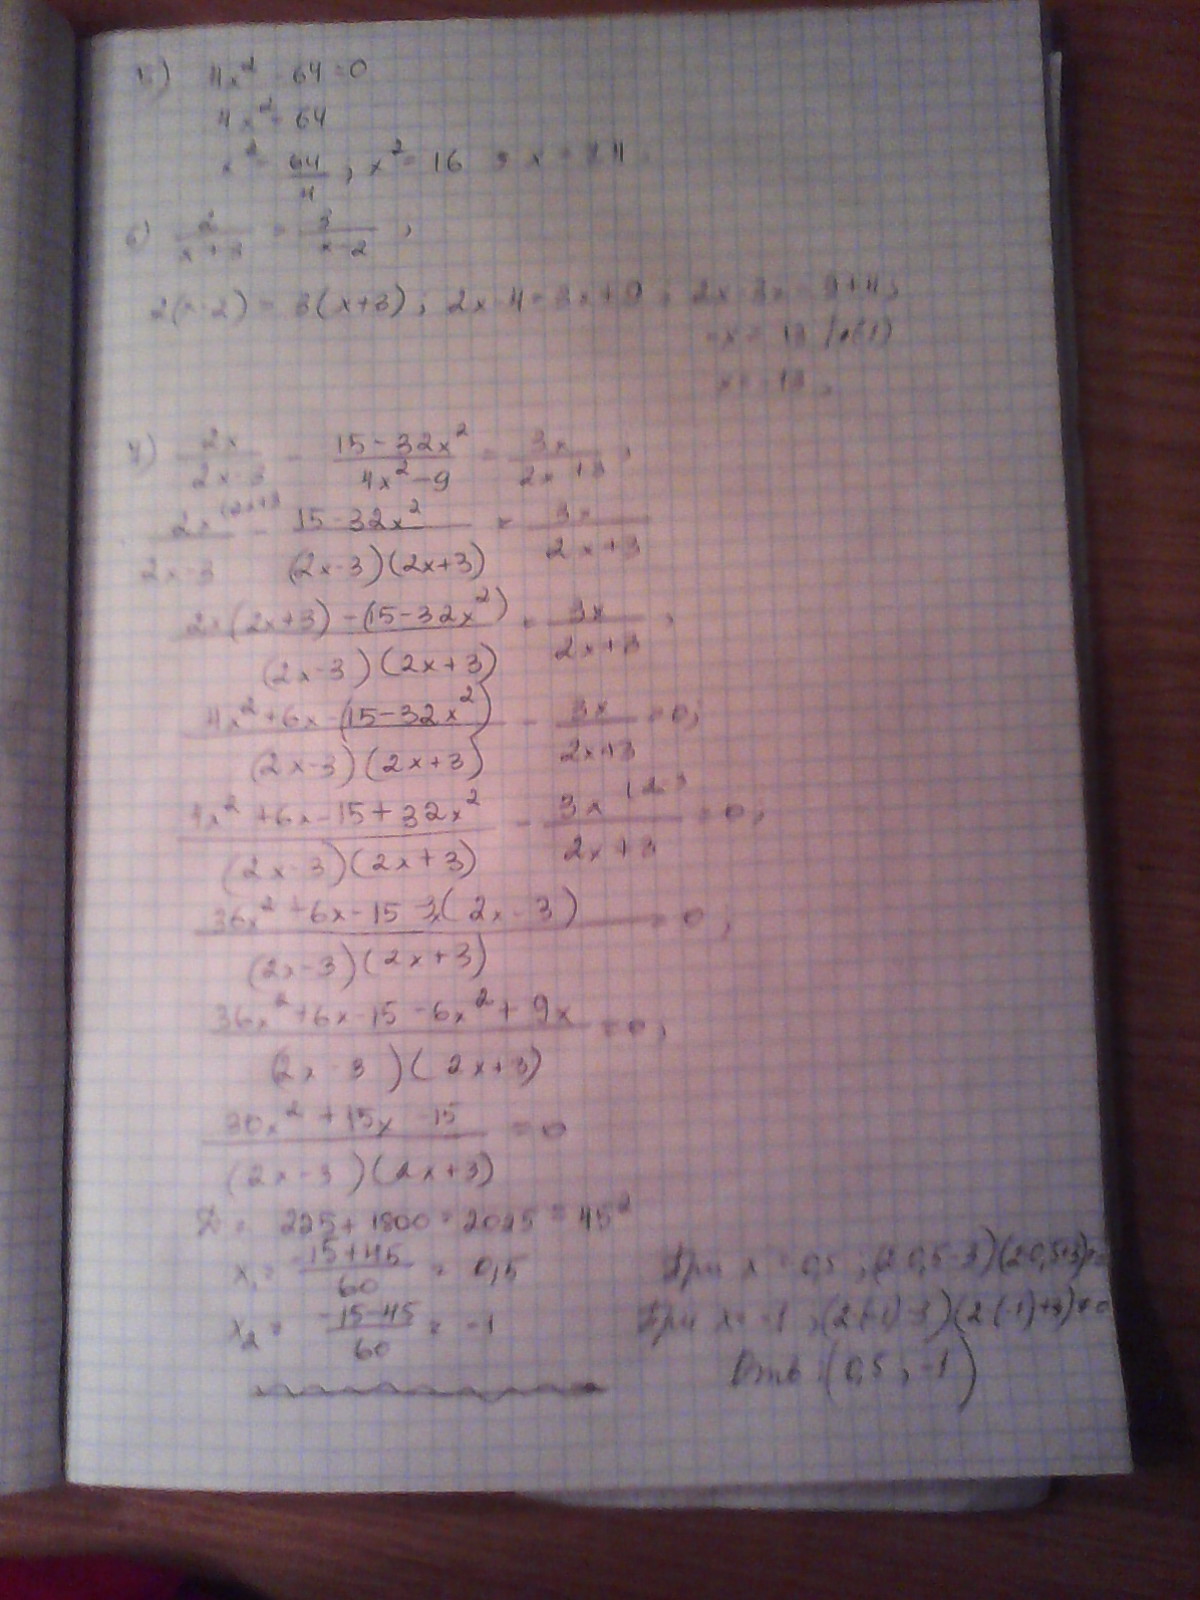 5) 4x² - 64 = 0
4x² = 64
x² = 64/4 ; x² = 16 ; x = ±4
6) 2/(x+3) = 3/(x-2) ;
2(x-2) = 3(x+3) ; 2x-4 = 3x+9 ; 2x-3x = 9+4 ;
-x = 13 /·(-1)
x = -13 ;
7) 2x/(2x-3) - (15-32x²)/(4x²-9) = 3x/(2x+3) ;
2x (2x+3/(2x-3) - (15-32x²)/((2x-3)(2x+3)) = 3x/(2x+3)
(2x(2x+3)-(15-32x²))/((2x-3)(2x+3)) = 3x/(2x+3) ;
(4x²+6x-(15-32x²))/((2x-3)(2x+3)) - 3x/(2x+3) = 0 ;
(4x²+6x-15+32x²)/((2x-3)(2x+3)) - 3x/(2x+3) = 0 ;
(36x²+6x-15-3x(2x-3))/((2x-3)(2x+3)) = 0 ;
(36x²+6x-15-6x²+9x)/((2x-3)(2x+3)) = 0 ;
(30x²+15x-15)/((2x-3)(2x+3)) = 0
D = 225+1800 = 2025 = 45²
x₁ = (-15+45)/60 = 0,5
x₂ = (-15-45)/60 = -1
При x = 0,5 ; (2·0,5-3)(2·0,5+3)≠
При x = -1 ; (2·(-1)-3)(2·(-1)+3)≠0
Отв: (0,5 ; -1)